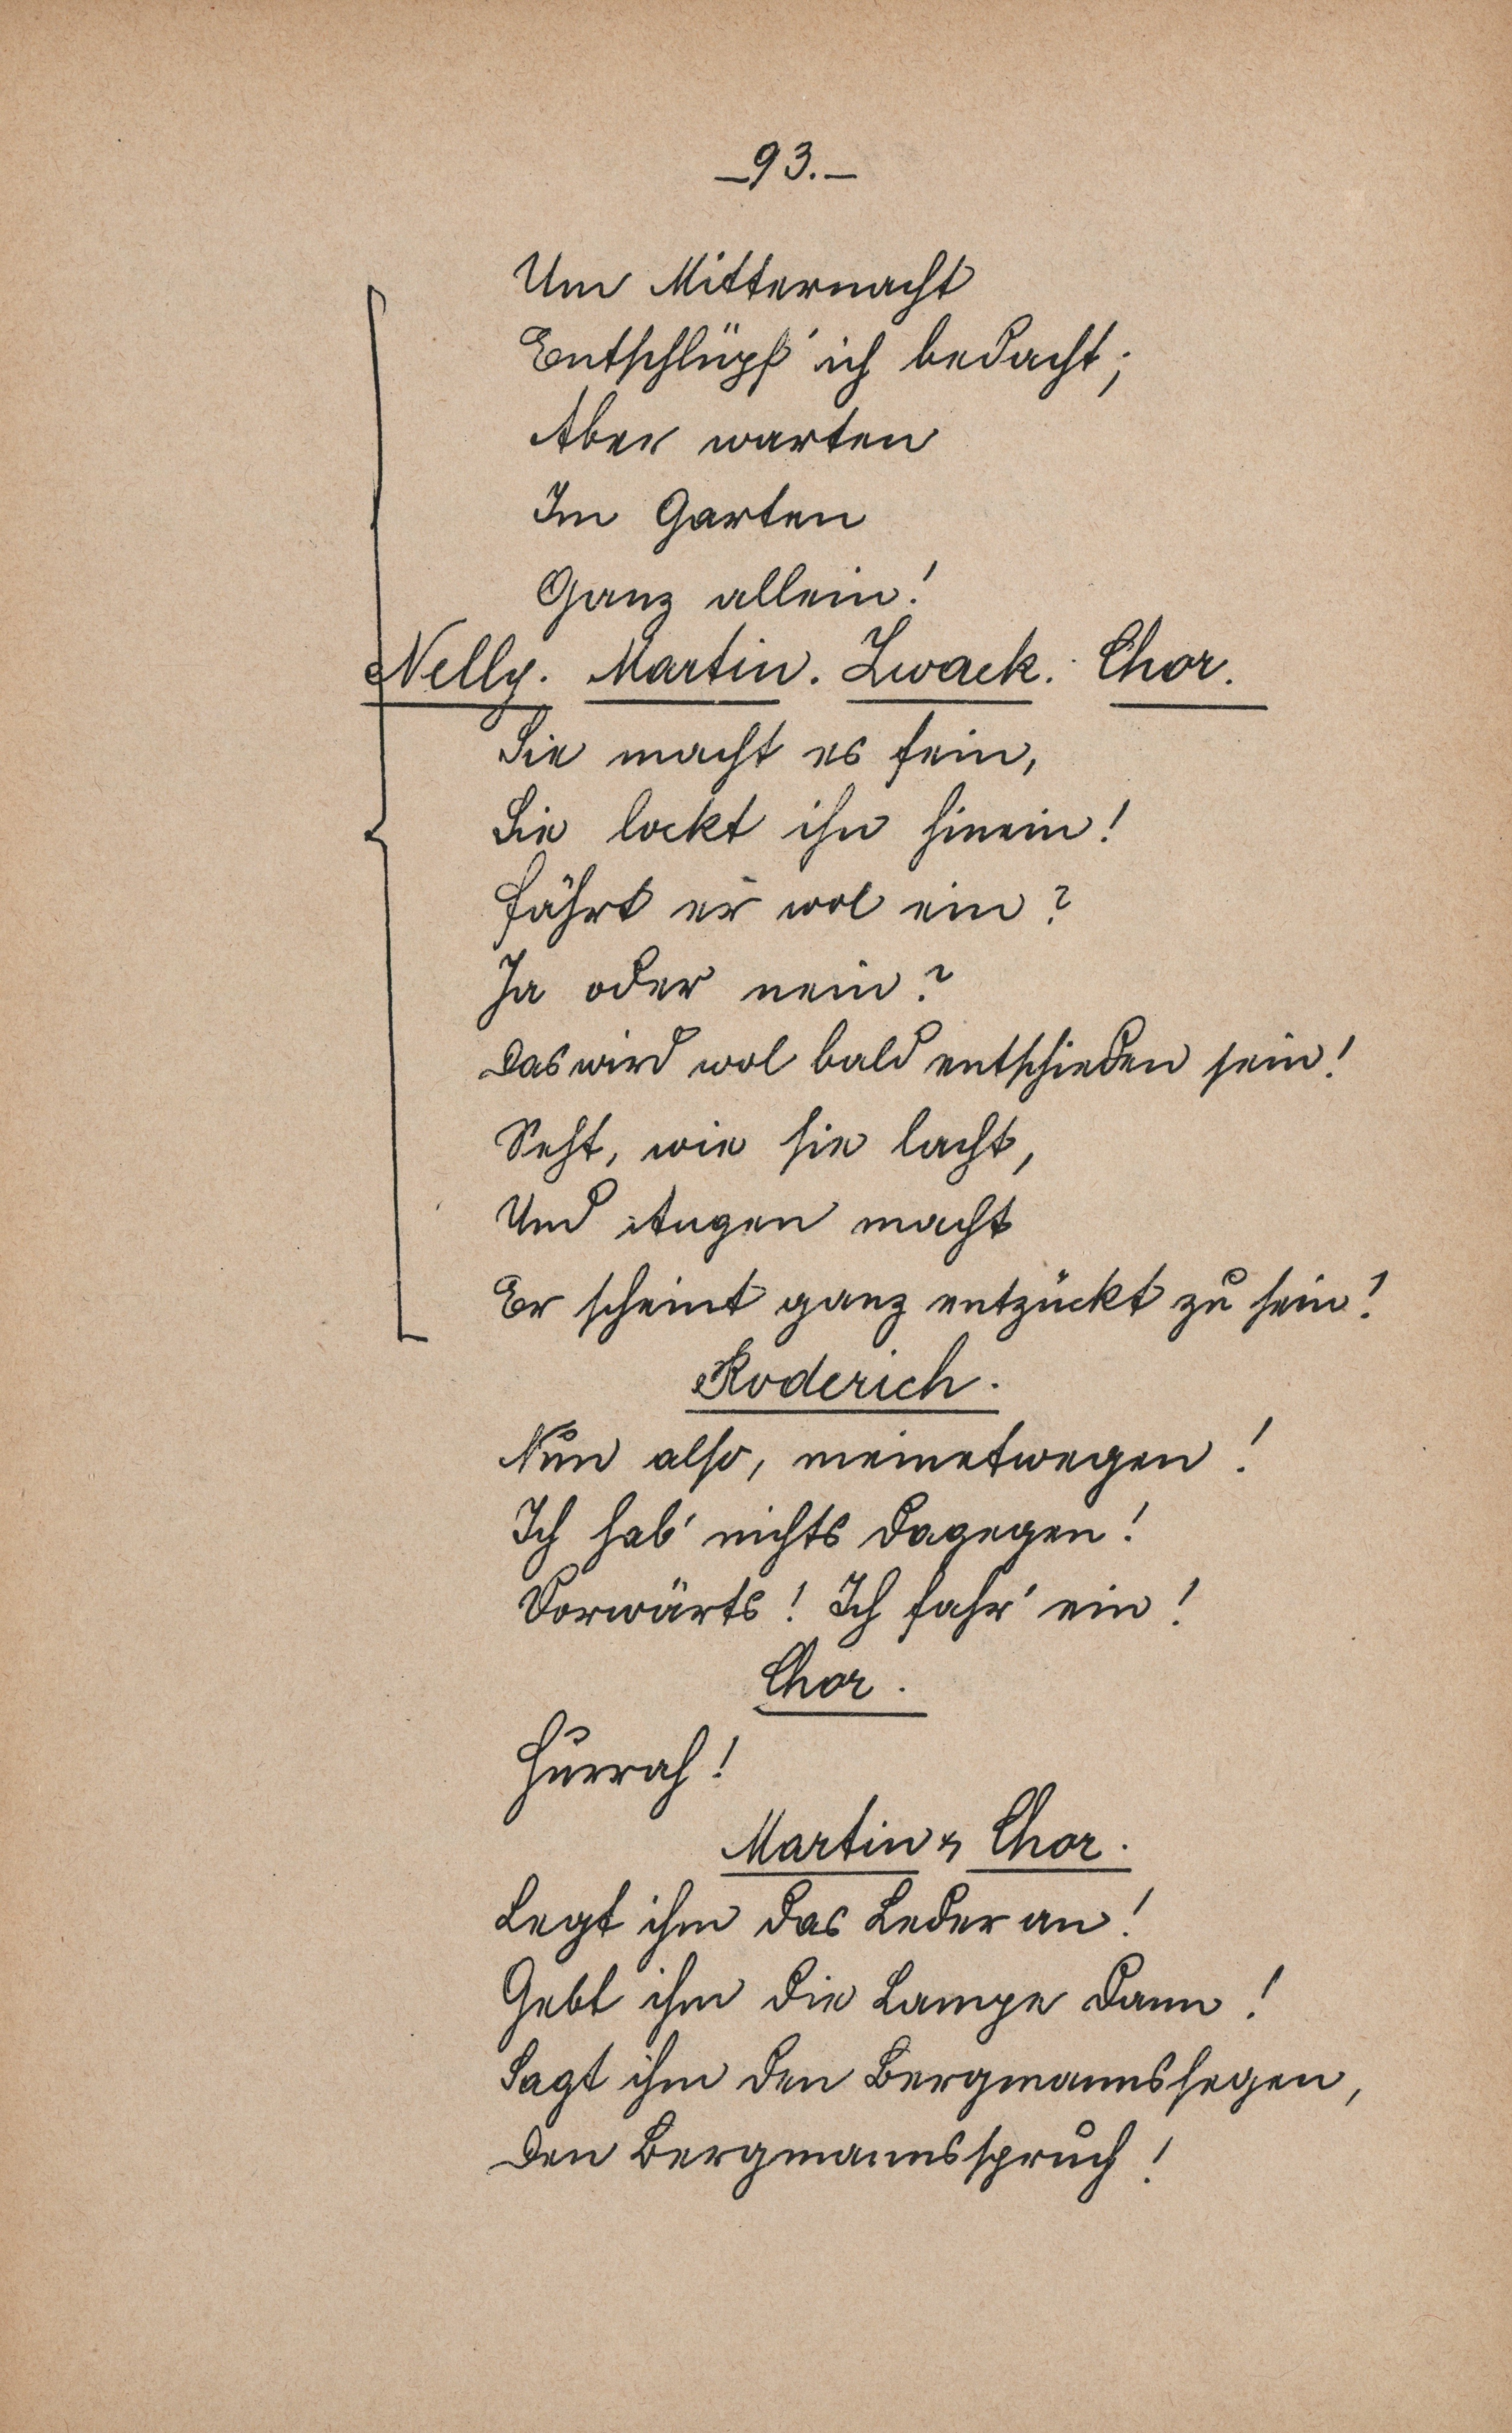 —93.—
Um Mitternacht
Entschlüpf' ich bedacht;
Aber warten
Im Garten
Ganz allein!
Nelly. Martin. Zwack. Chor.
Sie macht es fein,
Sie lockt ihn hinein!
Fährt er wol ein?
Ja oder nein?
Das wird wol bald entschieden sein!
Seht, wie sie lacht,
Und Augen macht
Er scheint ganz entzückt zu sein!
Roderich.
Nun also, meinetwegen!
Ich hab' nichts dagegen!
Vorwärts! Ich fahr' ein!
Chor.
Hurrah!
Martin & Chor.
Legt ihm das Leder an!
Gebt ihm die Lampe dann!
Sagt ihm den Bergmannssegen,
Den Bergmannsspruch!